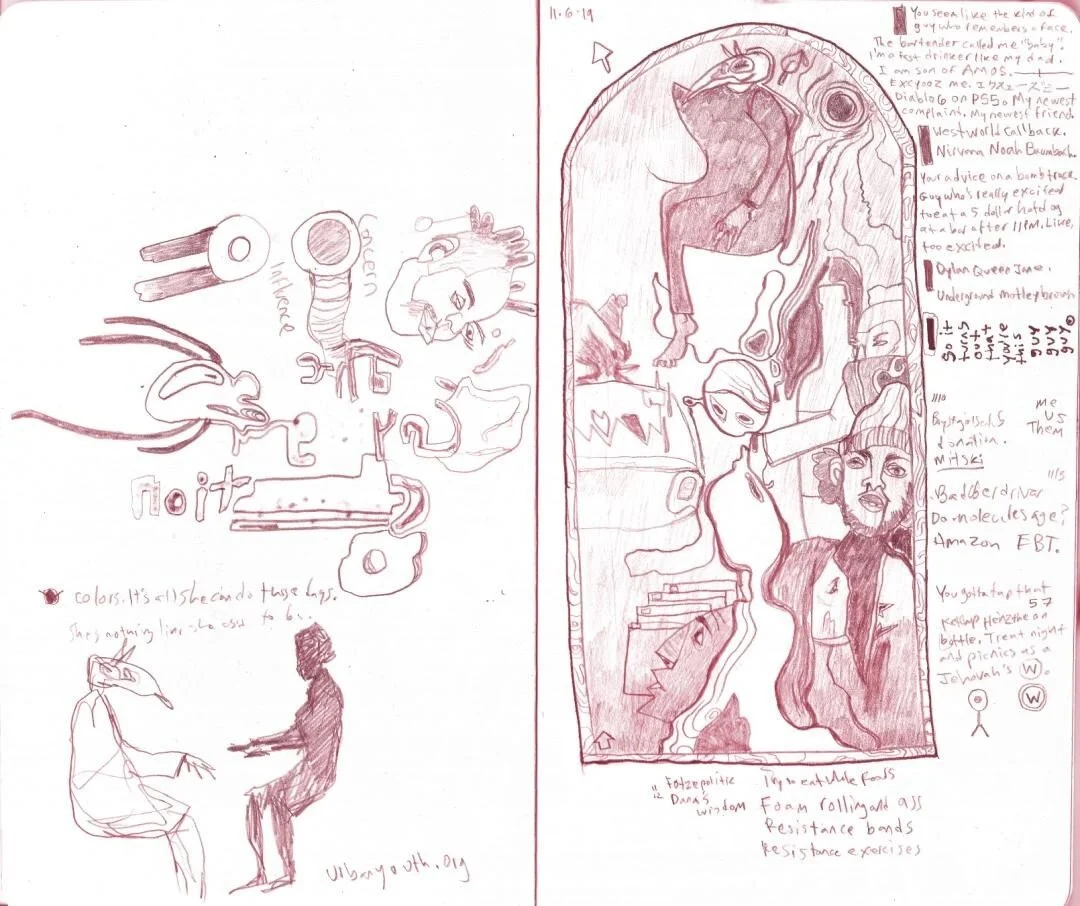 concern
influence
noit
colors. It's all she can do these days.
She's nothing like she used to be.
urbanyouth.org
11.6.19
You seem like the kind of
guy who remembers a face.
The bartender called me "baby".
I'm a fast drinker like my dad.
I am son of AMOS.
Excyooz me. エクスューズミー
Diablo 6 on PS5. My newest
complaint. My newest friend.
Westworld callback.
Nirvana Noah Baumbach.
Your advice on a bomb track.
Guy who's really excited
to eat a 5 dollar hotdog
at a bar after 11PM. Like,
too excited.
Dylan Queen Jane.
Underground motley brown
So it
turns
out
that
you're
this
guy
guy
guy
11/10
donation.
Mitski
me
us
Them
11/5
Bad Uber driver
Do molecules age?
Amazon EBT.
You gotta tap that
57
ketchup Heinz the on
bottle. Treat night
and picnics as a
Jehovah's W.
W
11/12
Fotzepolitic
Dana's
wisdom
Try to eat whole foods
Foam rolling and ass
Resistance bands
Resistance exercises